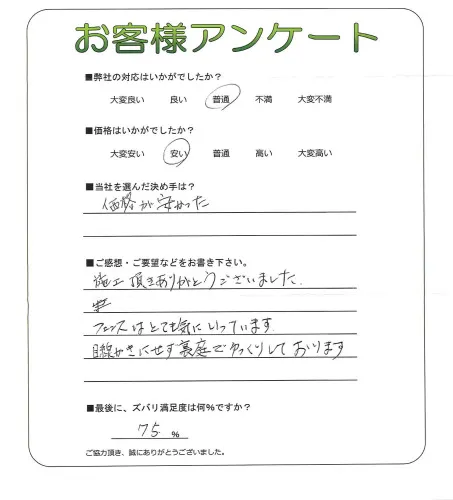 お客様アンケート
■弊社の対応はいかがでしたか?
大変良い 良い 普通 不満 大変不満
■価格はいかがでしたか?
大変安い 安い 普通 高い 大変高い
■当社を選んだ決め手は?
価格が安かった
■ご感想・ご要望などをお書き下さい。
施工頂きありがとうございました.
フェンスはとても気にいっています
目線かきにせず裏庭でゆっくりしております
■最後に、ズバリ満足度は何%ですか?
75 %
ご協力頂き、誠にありがとうございました。